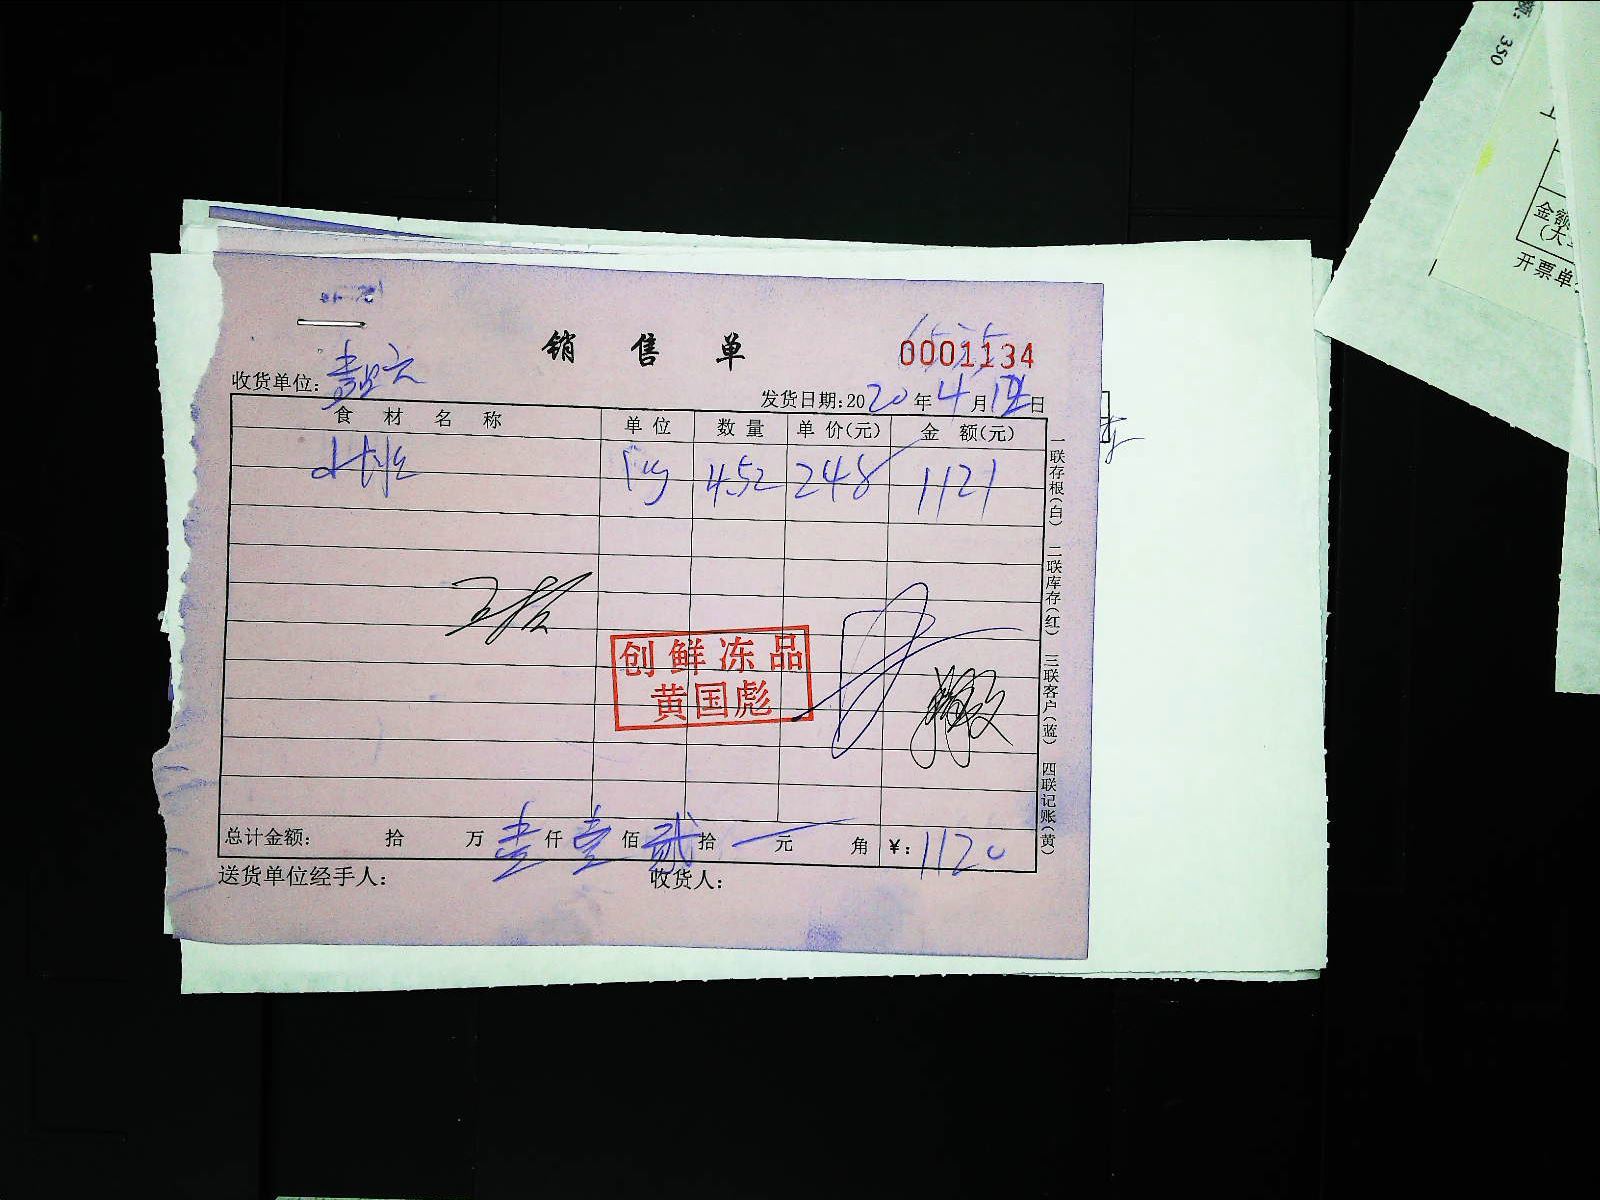 销售单
0001134
收货单位:
发货日期:2020年4月1日
食材名称 单位 数量 单价(元) 金额(元)
小排 kg 452 248 1121
创鲜冻品
黄国彪
总计金额: 拾 万 壹仟壹佰贰拾一元 角 ¥:1120
送货单位经手人: 收货人:
一联存根(白) 二联库存(红) 三联客户(蓝) 四联记账(黄)
350
金额
(大
开票单